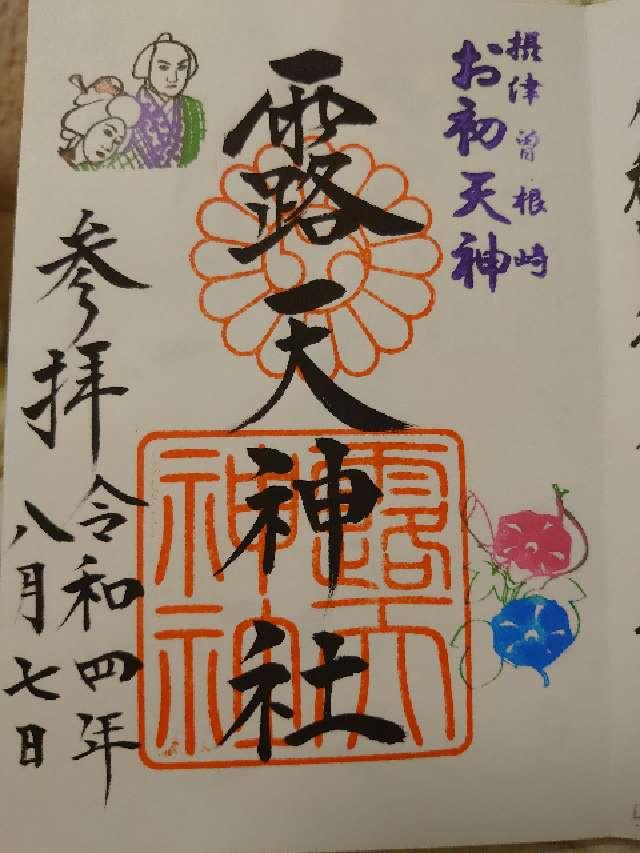 摂津 曽・根崎
お初天神
露天神社
露天
神社
参拝
令和四年
八月七日